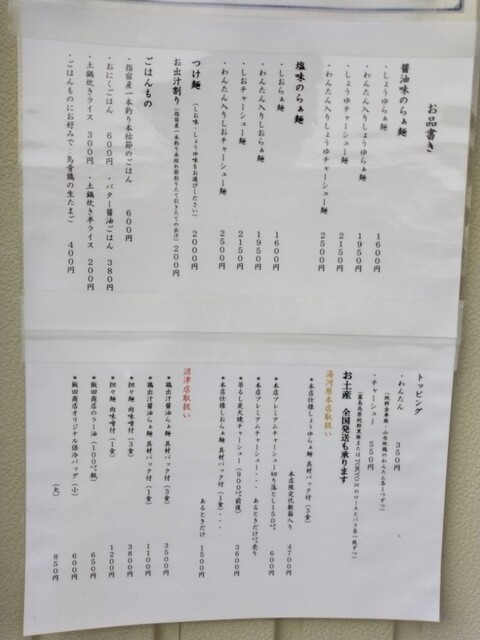 お品書き
醤油味のらぁ麺
・しょうゆらぁ麺 1600円
・わんたん入りしょうゆらぁ麺 1950円
・しょうゆチャーシュー麺 2150円
・わんたん入りしょうゆチャーシュー麺 2500円
塩味のらぁ麺
・しおらぁ麺 1600円
・わんたん入りしおらぁ麺 1950円
・しおチャーシュー麺 2150円
・わんたん入りしおチャーシュー麺 2500円
つけ麺 (しお味・しょうゆ味もお選びください) 2000円
お出汁割り (指宿産一本釣り本枯れ節削りたて引きたての出汁) 200円
ごはんもの
・指宿産一本釣り本枯節のごはん 600円
・おにくごはん 600円 ・バター醤油ごはん 380円
・土鍋炊きライス 300円 ・土鍋炊き半ライス 200円
・ごはんものにお好みで:烏骨鶏の生たまご 400円
トッピング
・わんたん 350円
・チャーシュー 550円
お土産 全国発送も承ります
湯河原本店取扱い
*本店仕様しょうゆらぁ麺 具材パック付(3食)
本店限定化粧箱入り 4700円
*本店プレミアムチャーシュー切り落とし150g 600円
*本店プレミアムチャーシュー・・・ あるときだけ売り
*吊るし炭火焼チャーシュー(900g前後) 3600円
*本店仕様しおらぁ麺 具材パック付(1食)・・・
あるときだけ 1500円
沼津店取扱い
*鶏出汁醤油らぁ麺 具材パック付(3食) 3500円
*鶏出汁醤油らぁ麺 具材パック付(1食) 1100円
*担々麺 肉味噌付(3食) 3800円
*担々麺 肉味噌付(1食) 1200円
*飯田商店のラー油(100g瓶) 650円
*飯田商店オリジナル保冷バッグ(小) 600円
(大) 850円